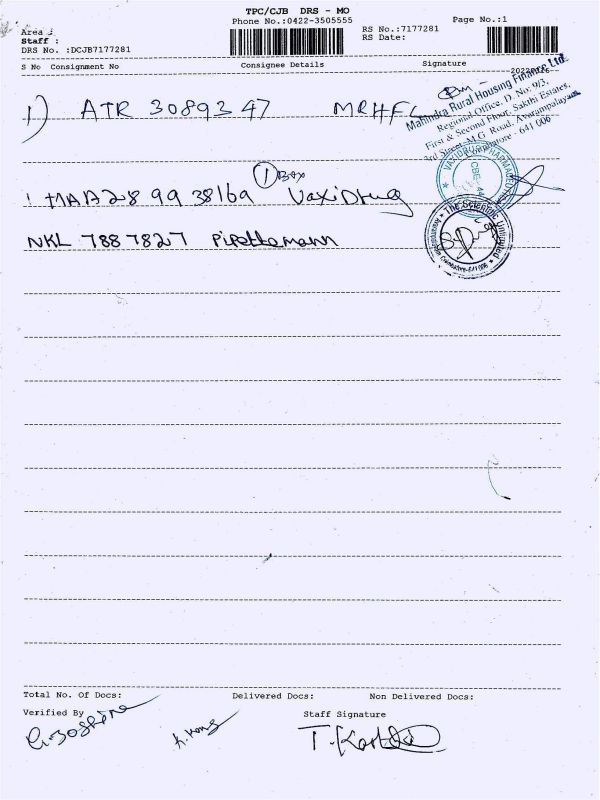 TPC/CJB DRS - MO
Phone No.:0422-3505555
Page No.:1
Area :
RS No.:7177281
Staff :
RS Date:
DRS No. :DCJB7177281
S No Consignment No Consignee Details Signature
1) ATR 308923 47 MRHFL
Mahindra Rural Housing Finance Ltd.
Regional Office, D. No: 9/3,
First & Second Floor, Sakthi Estates,
3rd Street, M.G. Road, Avarampalayam,
Coimbatore - 641 006
1 Box
MAA28 99 38169 Vaxi Drug
NKL 788 7827 Pipettemann
The Scientific Unlimited
Coimbatore-641 006
Total No. Of Docs: Delivered Docs: Non Delivered Docs:
Verified By
Staff Signature